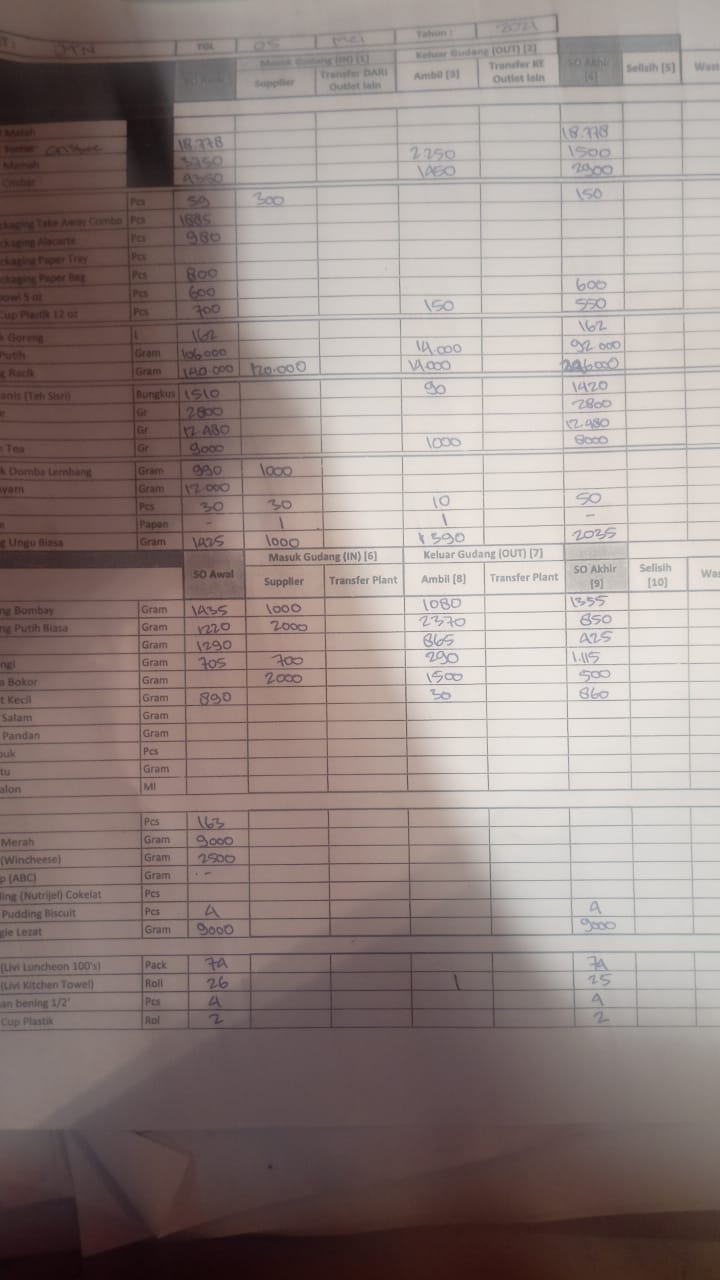 JTN TGL 05 Mei Tahun : 2021
Masuk Gudang (IN) [1] Keluar Gudang (OUT) [2]
Supplier Transfer DARI Outlet lain Ambil [3] Transfer KE Outlet lain SO Akhir [4] Selisih [5] Wast
18.778 18.778
3750 2250 1500
4350 1450 2900
Pcs 59 300 150
ckaging Take Away Combo Pcs 1885
ckaging Alacarte Pcs 980
ckaging Paper Tray Pcs
ckaging Paper Bag Pcs 800
owl 5 oz Pcs 600 600
Cup Plastik 12 oz Pcs 700 150 550
k Goreng L 162 162
Putih Gram 106.000 14.000 92.000
g Racik Gram 140.000 120.000 14.000
anis (Teh Sisri) Bungkus 1510 90 1420
Gr 2800 2800
Gr 12.480 12.480
Tea Gr 9000 1000 8000
k Domba Lembang Gram 990 1000
ayam Gram 12.000
Pcs 30 30 10 50
Papan - 1 1 -
g Ungu Biasa Gram 1425 1000 390 2035
SO Awal Masuk Gudang (IN) [6] Keluar Gudang (OUT) [7] SO Akhir [9] Selisih [10] Was
Supplier Transfer Plant Ambil [8] Transfer Plant
ng Bombay Gram 1435 1000 1080 1355
ng Putih Biasa Gram 1220 2000 2370 850
Gram 1290 865 425
ngi Gram 705 700 290 1.115
a Bokor Gram 2000 1500 500
t Kecil Gram 890 30 860
Salam Gram
Pandan Gram
uk Pcs
tu Gram
alon Ml
Pcs 163
Merah Gram 9000
(Wincheese) Gram 2500
p (ABC) Gram -
ding (Nutrijel) Cokelat Pcs
Pudding Biscuit Pcs 4 4
gie Lezat Gram 9000 9000
(Livi Luncheon 100's) Pack 74 74
(Livi Kitchen Towel) Roll 26 1 25
an bening 1/2' Pcs 4 4
Cup Plastik Rol 2 2